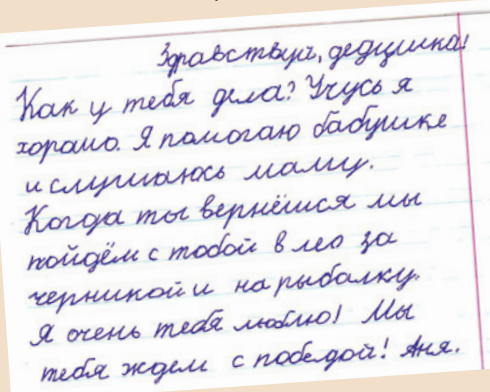 Здравствуй, дедушка!
Как у тебя дела? Учусь я
хорошо. Я помогаю бабушке
и слушаюсь маму.
Когда ты вернёшся мы
пойдём с тобой в лес за
черникой и на рыбалку.
Я очень тебя люблю! Мы
тебя ждем с победой! Аня.